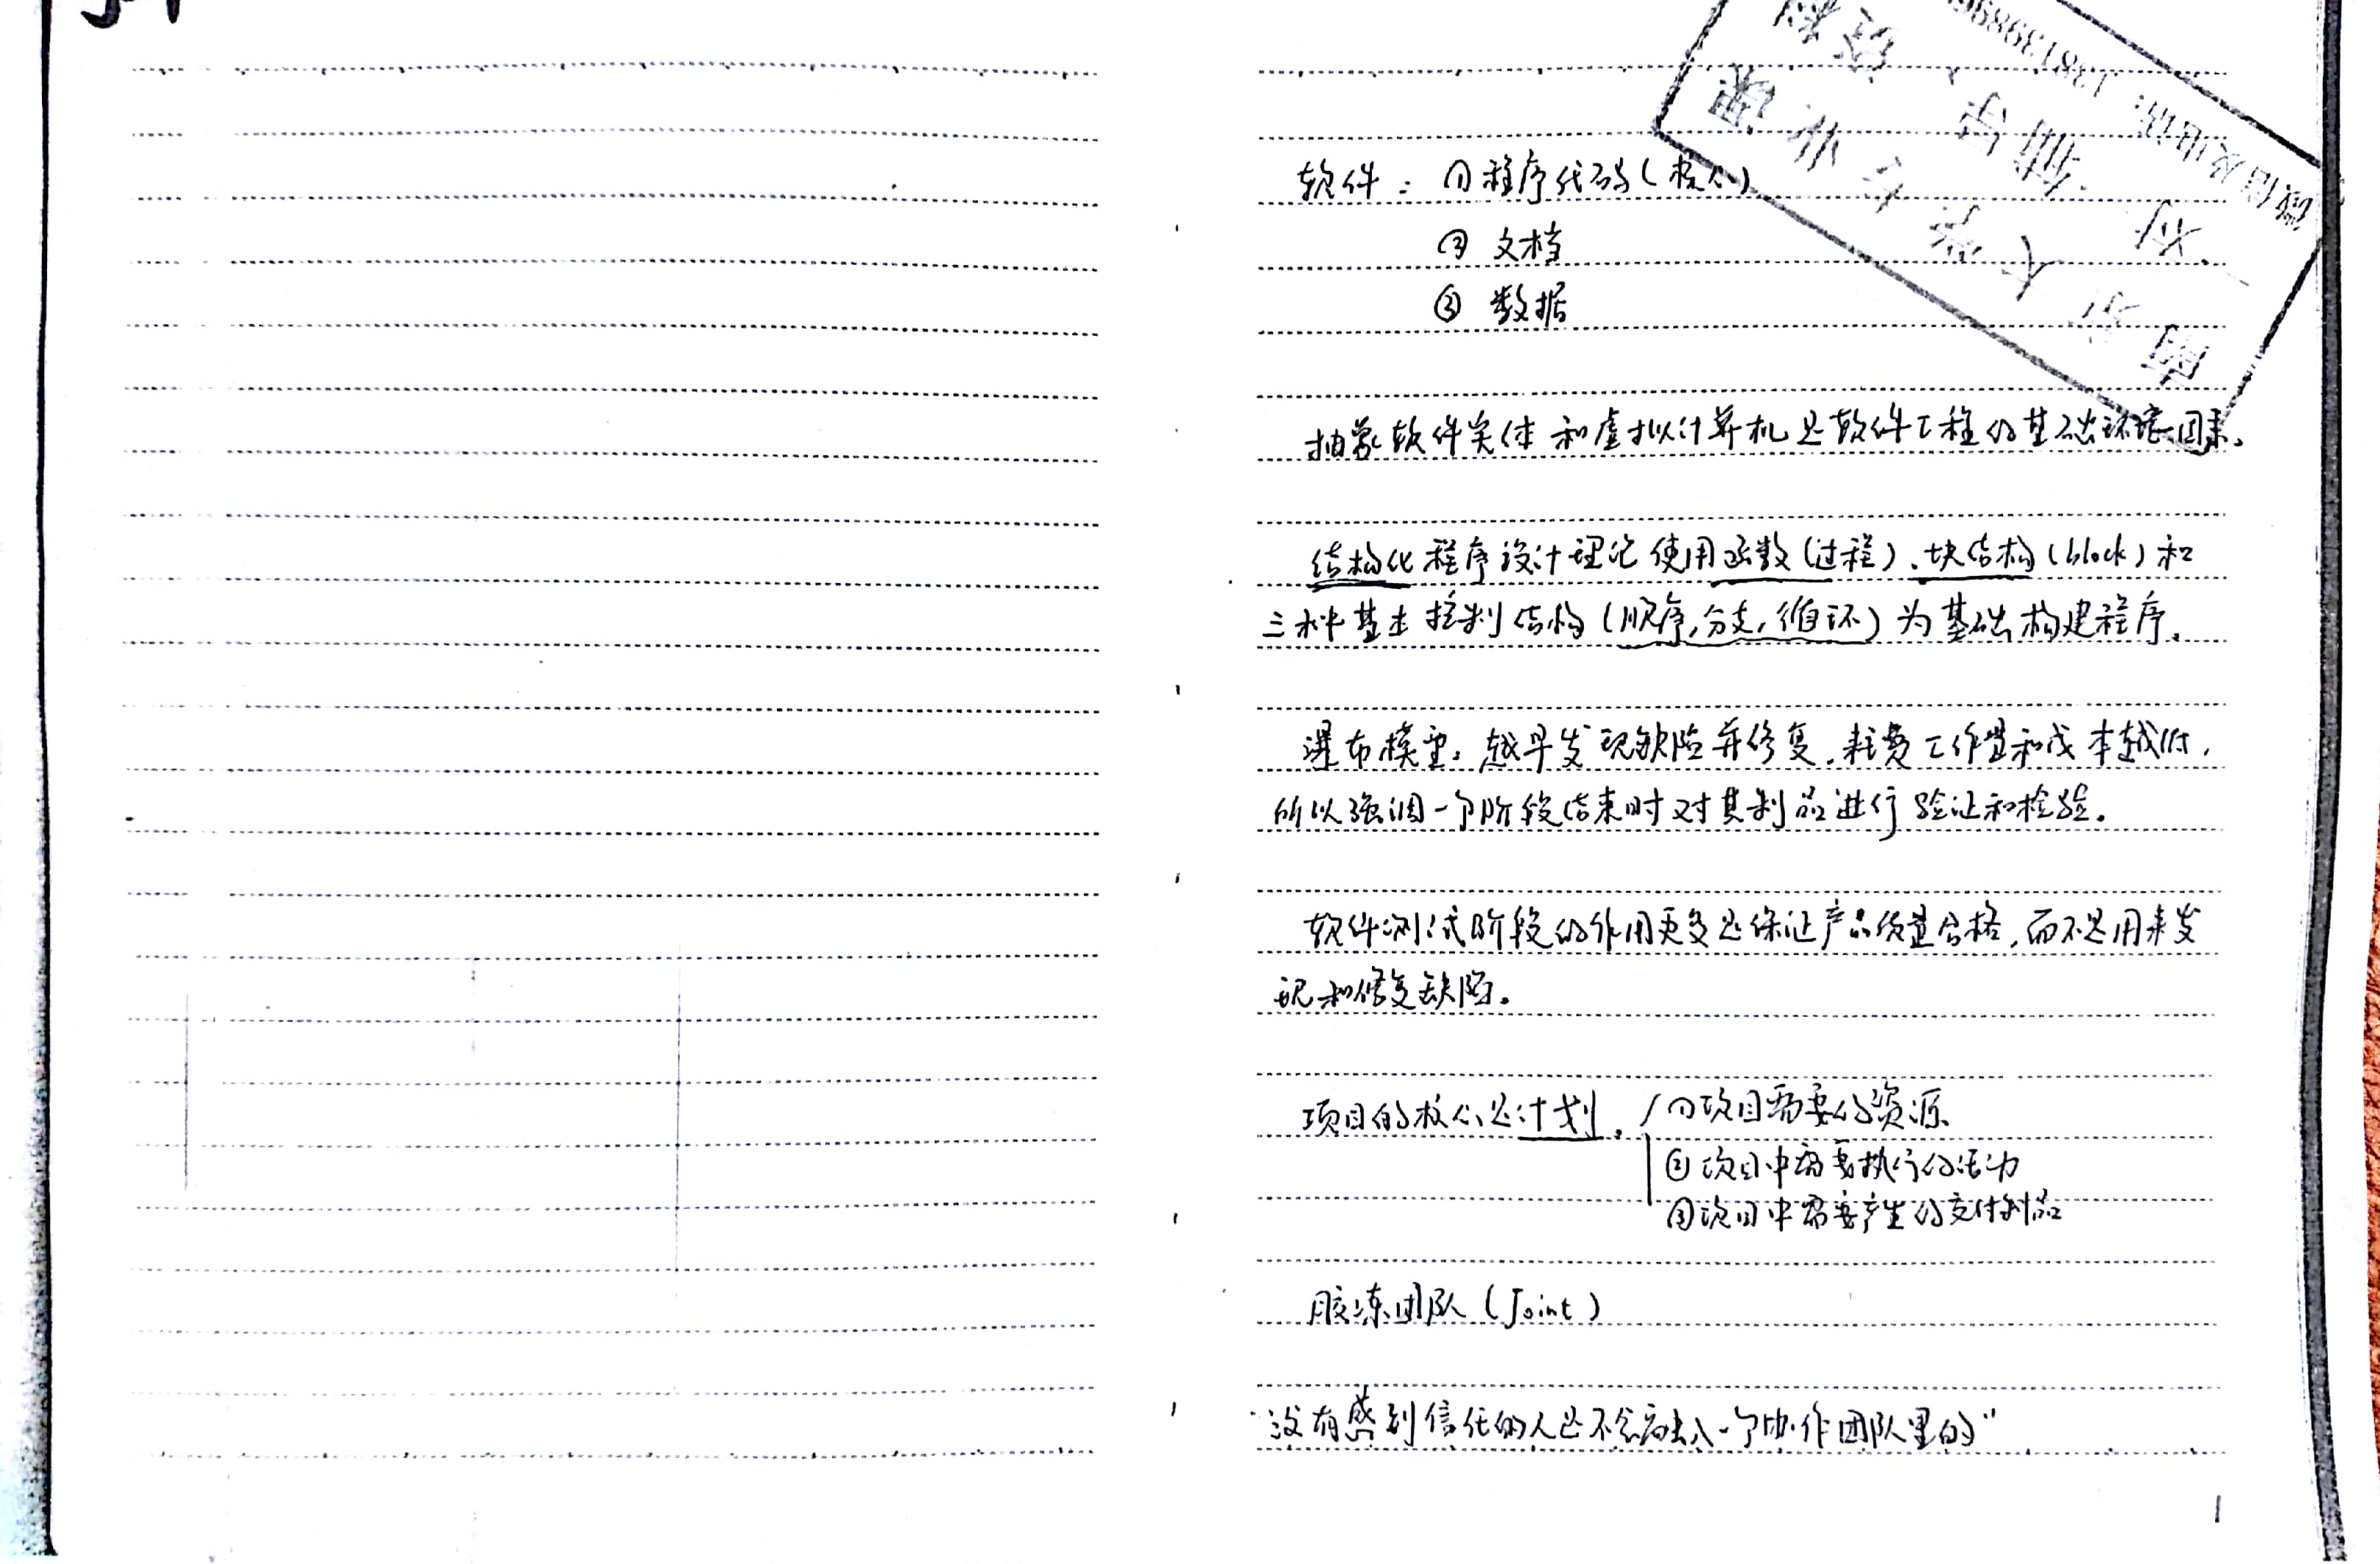 软件：①程序代码（核心）
② 文档
③ 数据
抽象软件实体和虚拟计算机是软件工程的基础环境因素。
结构化程序设计理论使用函数（过程）、块结构（block）和
三种基本控制结构（顺序，分支，循环）为基础构建程序。
瀑布模型：越早发现缺陷并修复，耗费工作量和成本越低，
所以强调一个阶段结束时对其制品进行验证和检验。
软件测试阶段的作用更多是保证产品质量合格，而不是用来发
现和修复缺陷。
项目的核心是计划。①项目需要的资源
②项目中需要执行的活动
③项目中需要产生的交付制品
胶冻团队（Joint）
“没有感到信任的人是不会融入一个协作团队里的”
1